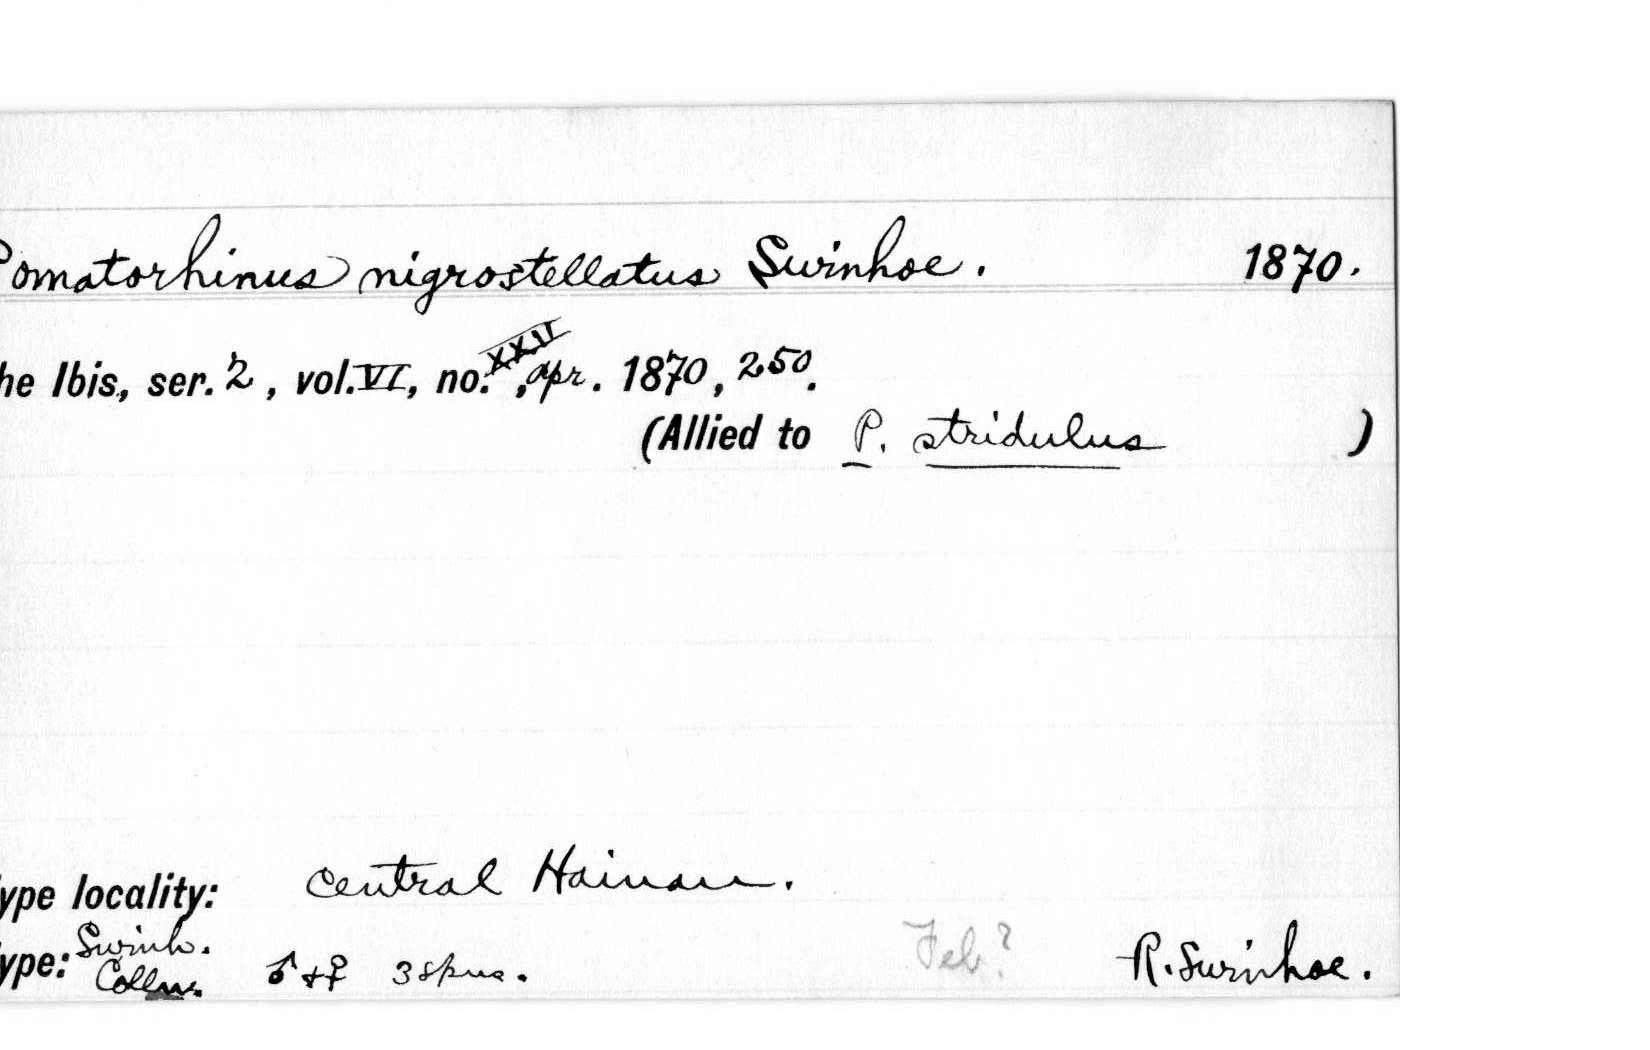 Pomatorhinus nigrostellatus Swinhoe. 1870.
he Ibis, ser. 2, vol. VI, no. XXII, Apr. 1870, 250.
(Allied to P. stridulus )
ype locality: Central Hainan.
ype: Swinh. Colln. ♂ + ♀ 3 spns. Feb? R. Swinhoe.